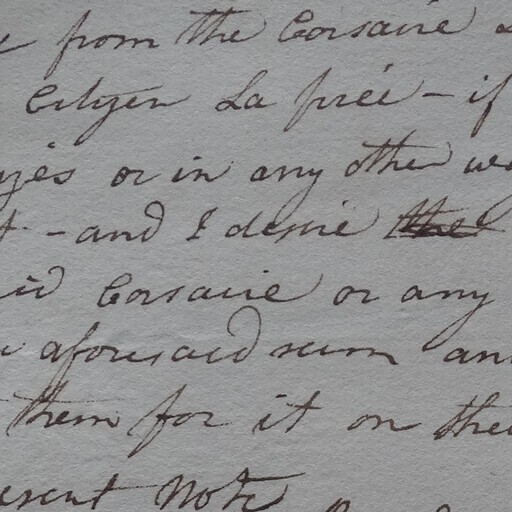 from the Corsaire
Citizen La préé - if
or in any other
- and I desire the
Corsaire or any
aforesaid sum
them for it on
Note